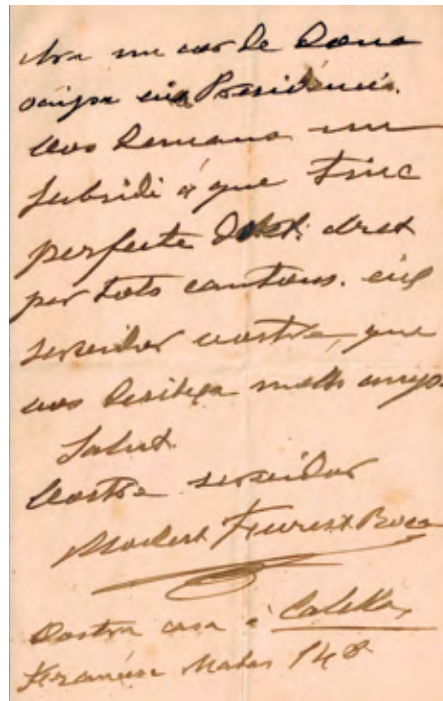 Ara un cor de Dona
ocupa eixa Presidència.
Vos demano un
subsidi á que tinc
perfecte dret
per tots cantons. eix
servidor vostre, que
vos desitja molts anys.
Salut.
Vostre servidor
Modest Furest Roca
Vostra casa á Calella,
Francisco 148